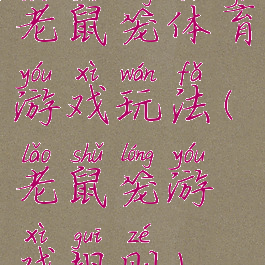 老鼠笼体育
yóu xì wán fǎ
游戏玩法(
lǎo shǔ lóng yóu
老鼠笼游
xì guī zé
戏规则)